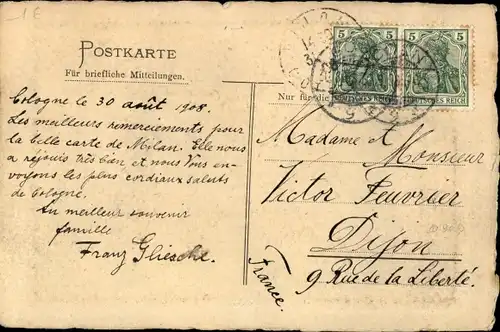 1E
POSTKARTE
Für briefliche Mitteilungen.
5 5 5 5
DEUTSCHES REICH DEUTSCHES REICH
Nur für die
Cologne le 30 août 1908.
Les meilleurs remerciements pour
la belle carte de Milan. Elle nous
a réjouis très bien et nous Vous en-
voyons les plus cordiaux saluts
de Cologne.
Au meilleur souvenir
famille
Franz Gliesche.
Madame et Monsieur
Victor Feuvrier
Dijon
9 Rue de la Liberté.
France.